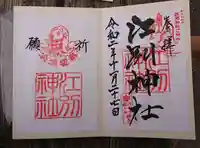 奉拝
江別神社
令和二年十二月二十七日
祈
願
江別
神社